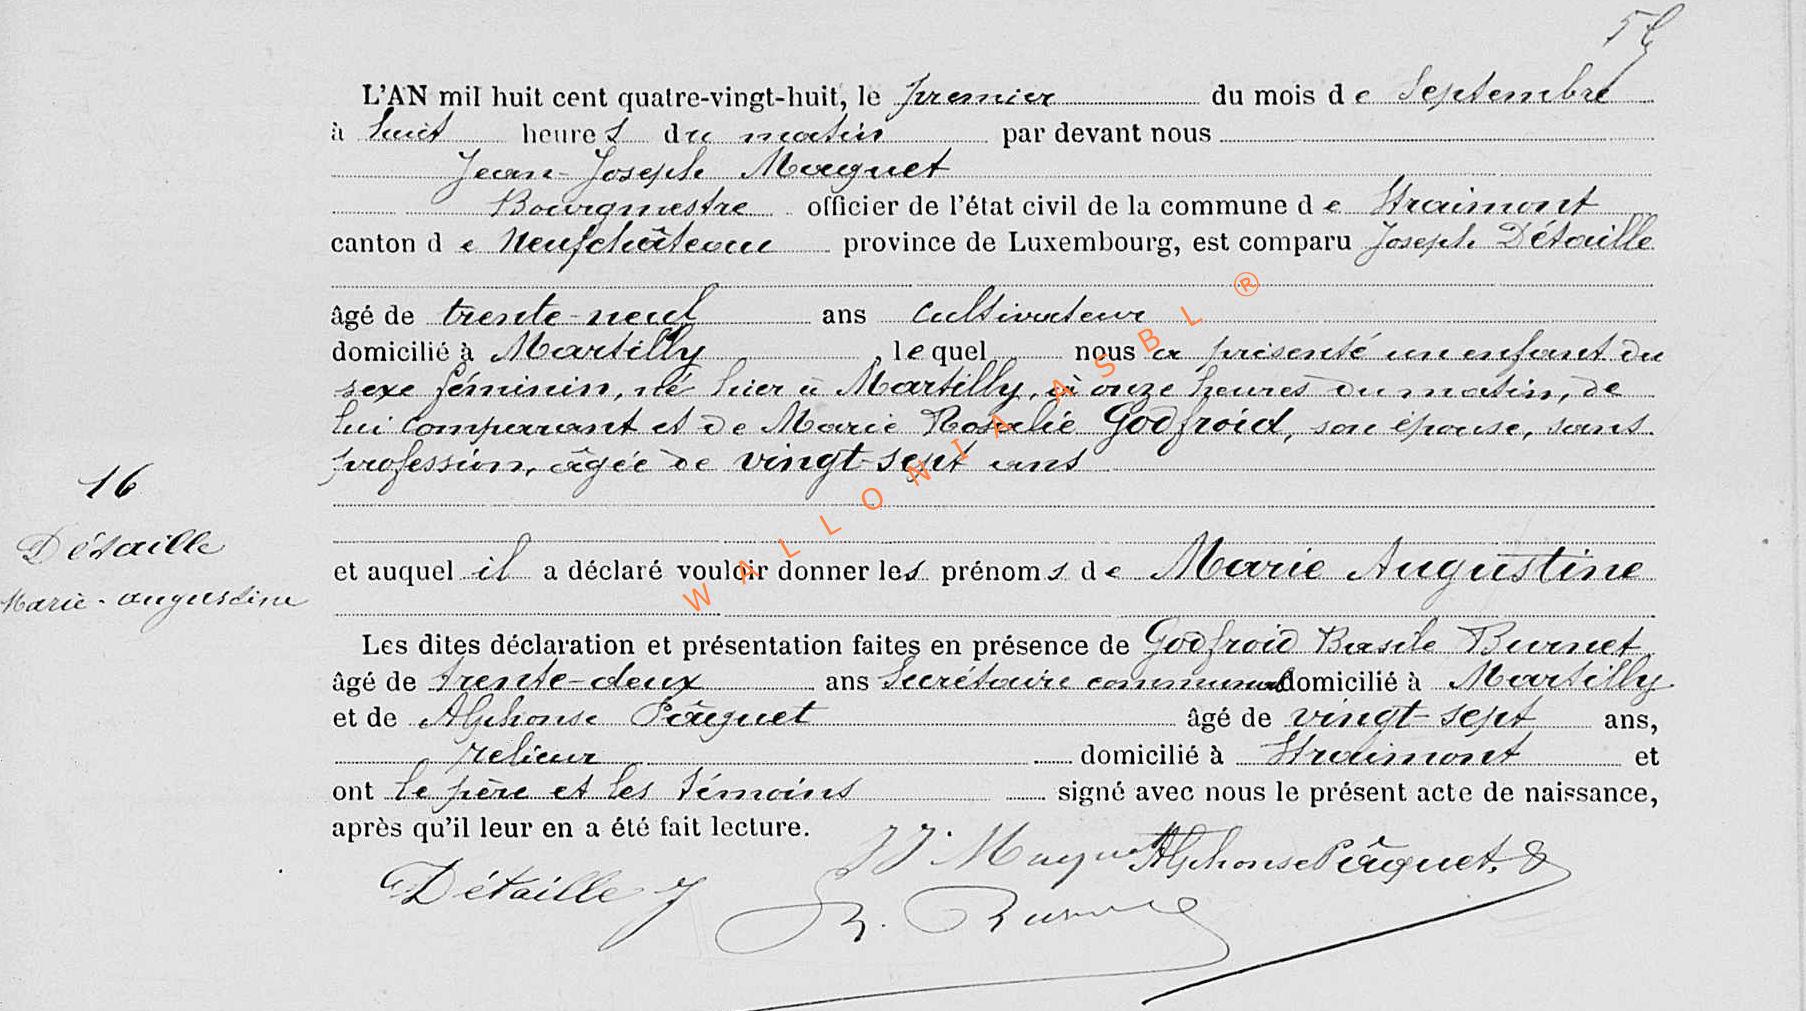 L'AN mil huit cent quatre-vingt-huit, le premier du mois de Septembre
à huit heures du matin par devant nous
Jean-Joseph Maquet
Bourgmestre officier de l'état civil de la commune de Straimont
canton de Neufchâteau province de Luxembourg, est comparu Joseph Détaille
âgé de trente-neuf ans cultivateur
domicilié à Martilly lequel nous a présenté un enfant du
sexe féminin, né hier à Martilly, à onze heures du matin, de
lui comparant et de Marie Rosalie Godfroid, son épouse, sans
profession, âgée de vingt-sept ans
16
Détaille
Marie-augustine
et auquel il a déclaré vouloir donner les prénoms de Marie Augustine
Les dites déclaration et présentation faites en présence de Godfroid Basile Burnet
âgé de trente-deux ans Secrétaire communal domicilié à Martilly
et de Alphonse Pâquet âgé de vingt-sept ans,
relieur domicilié à Straimont et
ont le père et les témoins signé avec nous le présent acte de naissance,
après qu'il leur en a été fait lecture.
JJ. Maquet Alphonse Pâquet.
Détaille J
WALLONIA ASBL ®